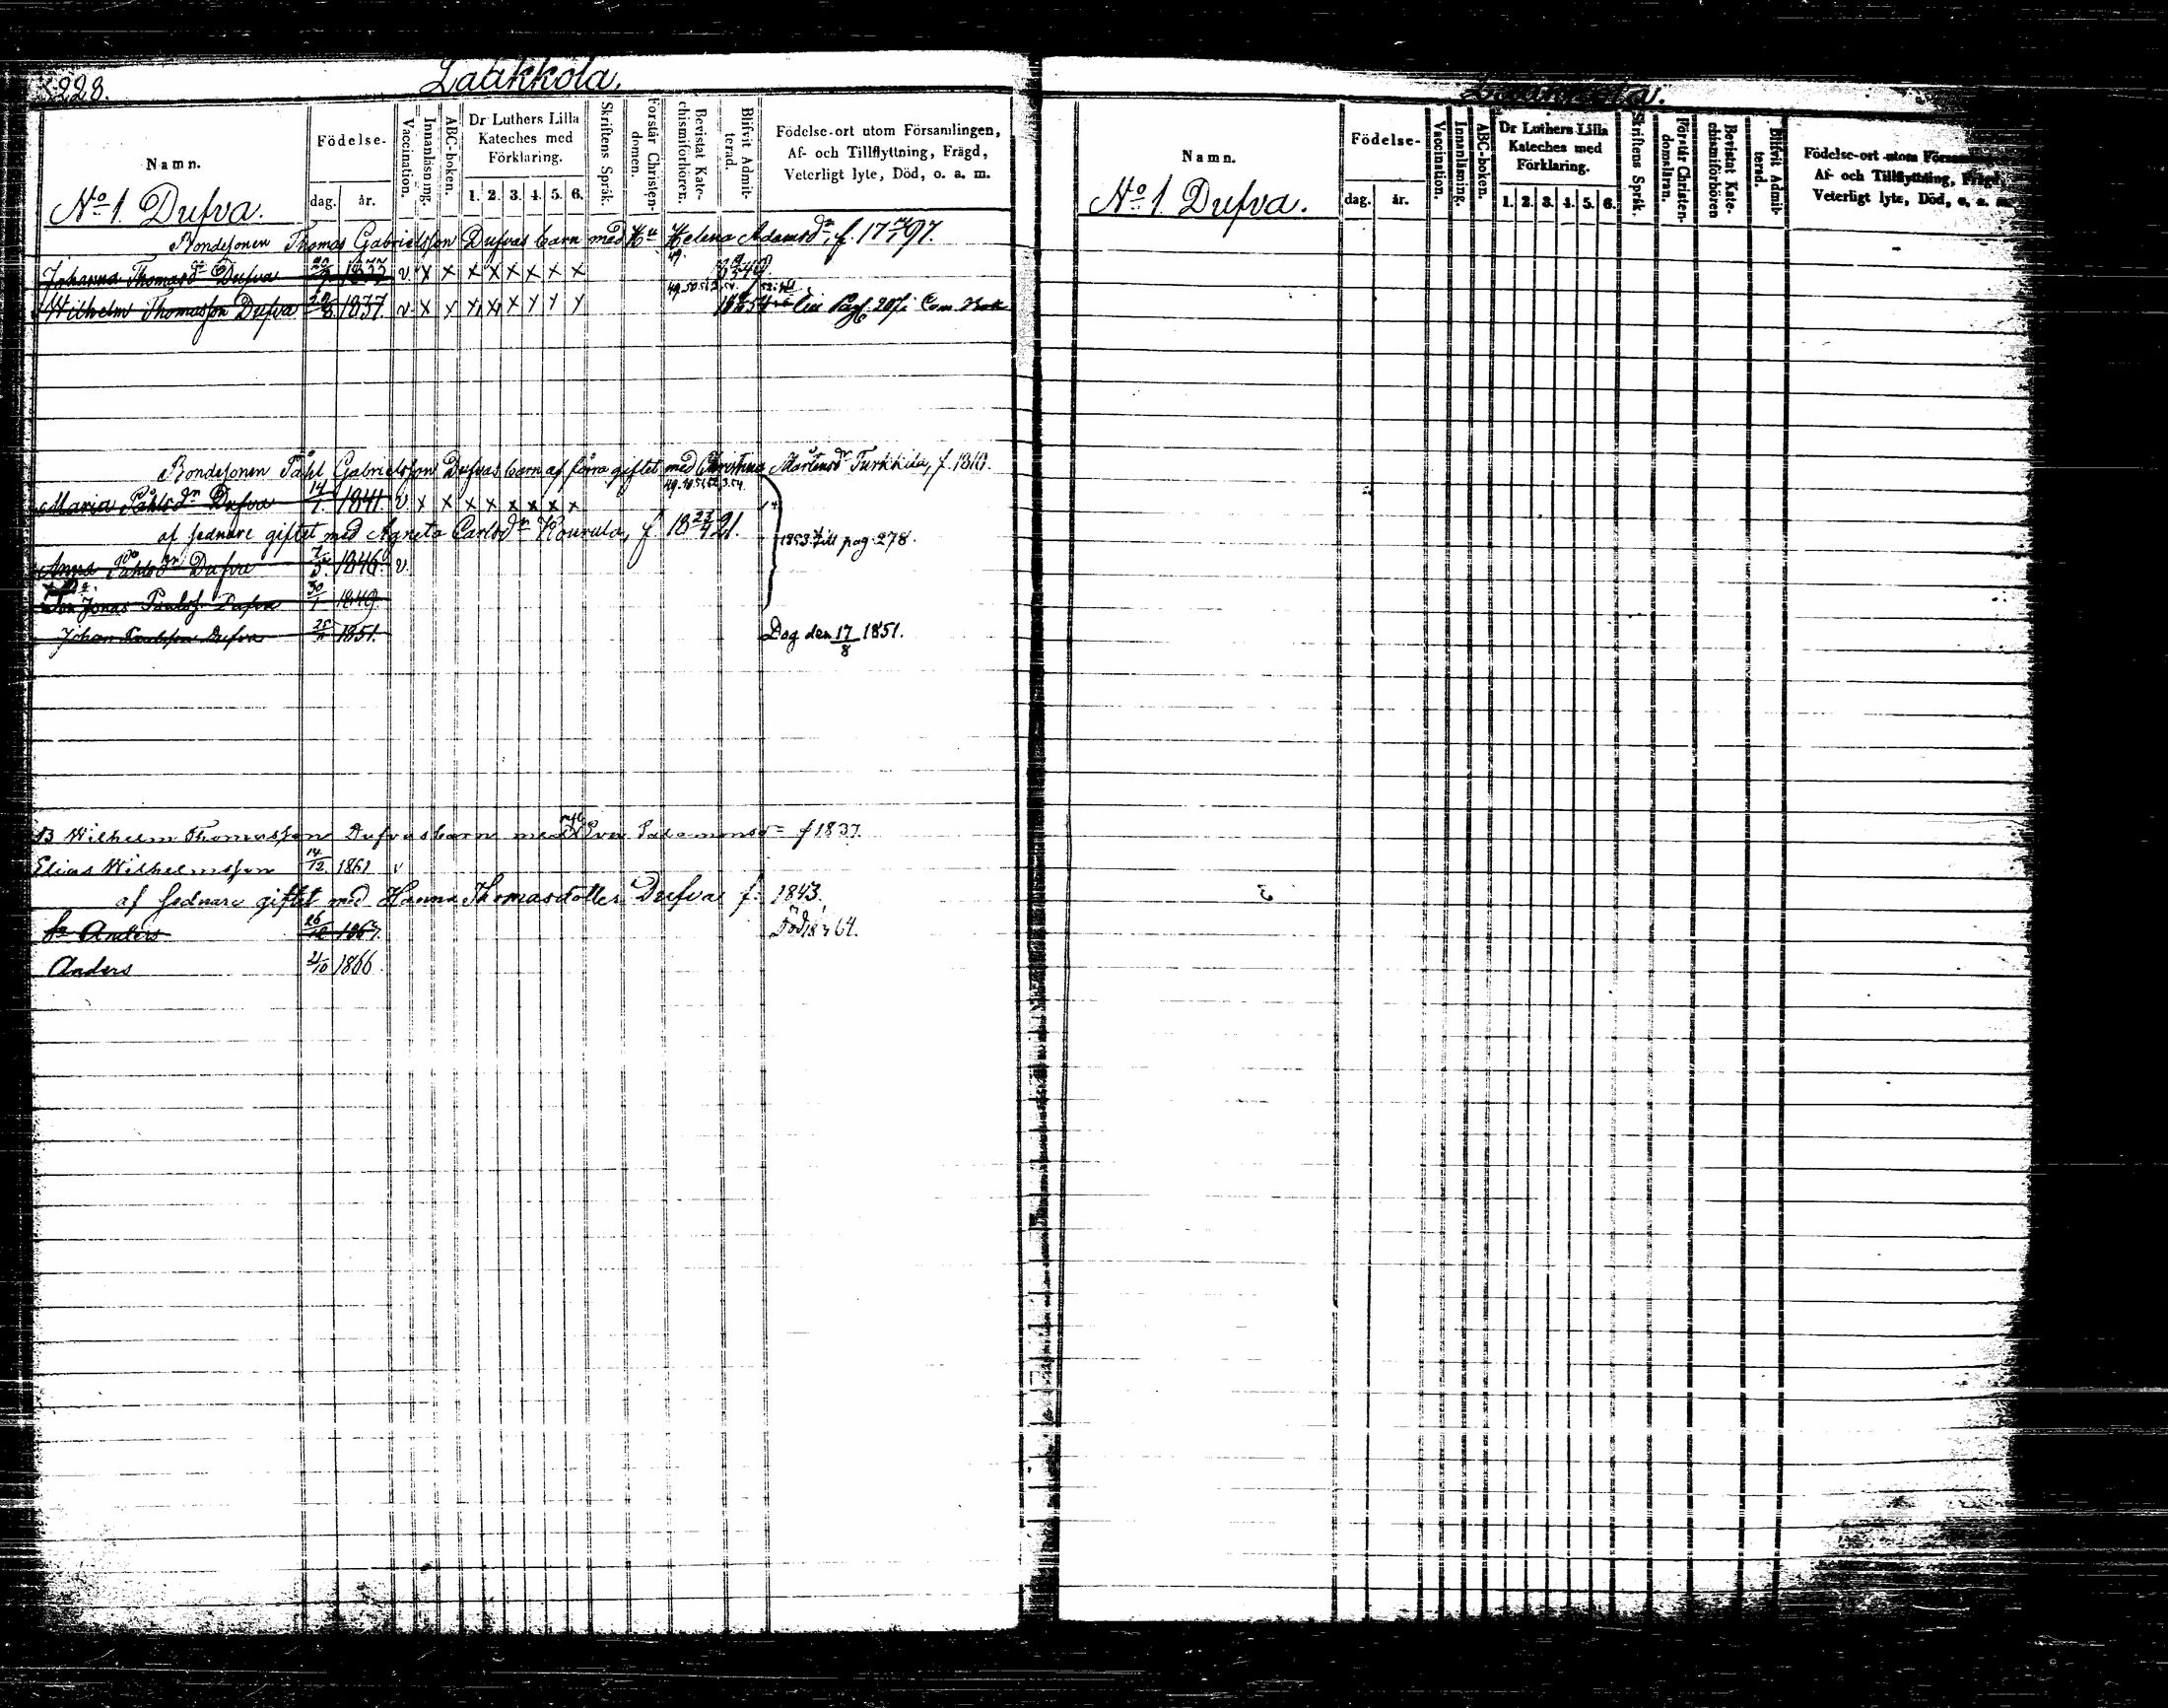 228.
Laukkola.
Namn.
Födelse-
dag. år.
Vaccination.
Innanläsning.
ABC-boken.
Dr Luthers Lilla
Kateches med
Förklaring.
1. 2. 3. 4. 5. 6.
Skriftens Språk.
Förstår Christen-
domen.
Bevistat Kate-
chismiförhören.
Blifvit Admit-
terad.
Födelse-ort utom Församlingen,
Af- och Tillflyttning, Frägd,
Veterligt lyte, Död, o. a. m.
No 1. Dufva.
Bondesonen Thomas Gabrielsson Dufvas barn med Hu Helena Adamsdr, f. 17 97.
Johanna Thomasdr Dufva 1833 v. x x x x x x x x 49.
Wilhelm Thomasson Dufva 1837. v. x x x x x x x x
Bondesonen Påhl Gabrielsson Dufvas barn af förra giftet med Christina Mårtensdr Turkkila, f. 1810.
Maria Påhlsdr Dufva 14/1 1841. v. x x x x x x x x
af sednare giftet med Agneta Carlsdr Kourula, f. 18 23/4 21.
1853 till pag. 278.
Anna Påhlsdr Dufva 7/5 1846. v.
Jonas Paulss. Dufva 30/1 1849.
Johan Paulsson Dufva 1851. Dog den 17/8 1851.
B Wilhelm Thomasson Dufvas barn med Eva Salomonsd f 1837.
Elias Wilhelmsson 14/12 1861 v
af sednare giftet med Hanna Thomasdotter Dufva f. 1843.
Anders 26/10 186 Död 64.
Anders 2/10 1866.
Namn.
Födelse-
dag. år.
Vaccination.
Innanläsning.
ABC-boken.
Dr Luthers Lilla
Kateches med
Förklaring.
1. 2. 3. 4. 5. 6.
Skriftens Språk.
Förstår Christen-
domsläran.
Bevistat Kate-
chismiförhören
Blifvit Admit-
terad.
Födelse-ort utom
Af- och Tillflyttning, Frägd,
Veterligt lyte, Död, o. a. m.
No 1. Dufva.